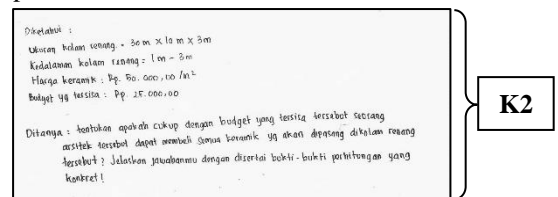 Diketahui :
Ukuran kolam renang = 30 m x 10 m x 3m
Kedalaman kolam renang = 1m - 3m
Harga keramik : Rp. 50.000,00 /m²
Budget yg tersisa : Rp. 25.000,00
Ditanya : tentukan apakah cukup dengan budget yang tersisa tersebut seorang
arsitek tersebut dapat membeli semua keramik yg akan dipasang dikolam renang
tersebut ? Jelaskan jawabanmu dengan disertai bukti - bukti perhitungan yang
konkret !
K2